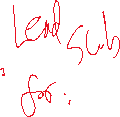 Lead
sub
for :